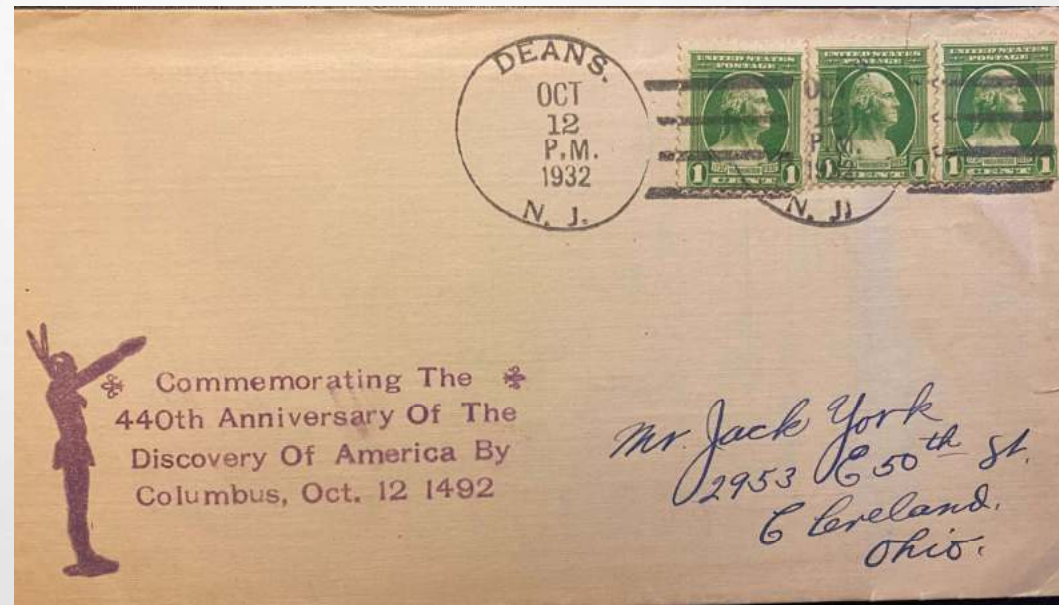 DEANS.
OCT
12
P.M.
1932
N. J.
UNITED STATES
POSTAGE
1 WASHINGTON 1
CENT
UNITED STATES
POSTAGE
1 WASHINGTON 1
CENT
UNITED STATES
POSTAGE
1 WASHINGTON 1
CENT
12
P.M.
N. J.
Commemorating The
440th Anniversary Of The
Discovery Of America By
Columbus, Oct. 12 1492
Mr. Jack York
2953 E 50th St.
Cleveland.
Ohio.